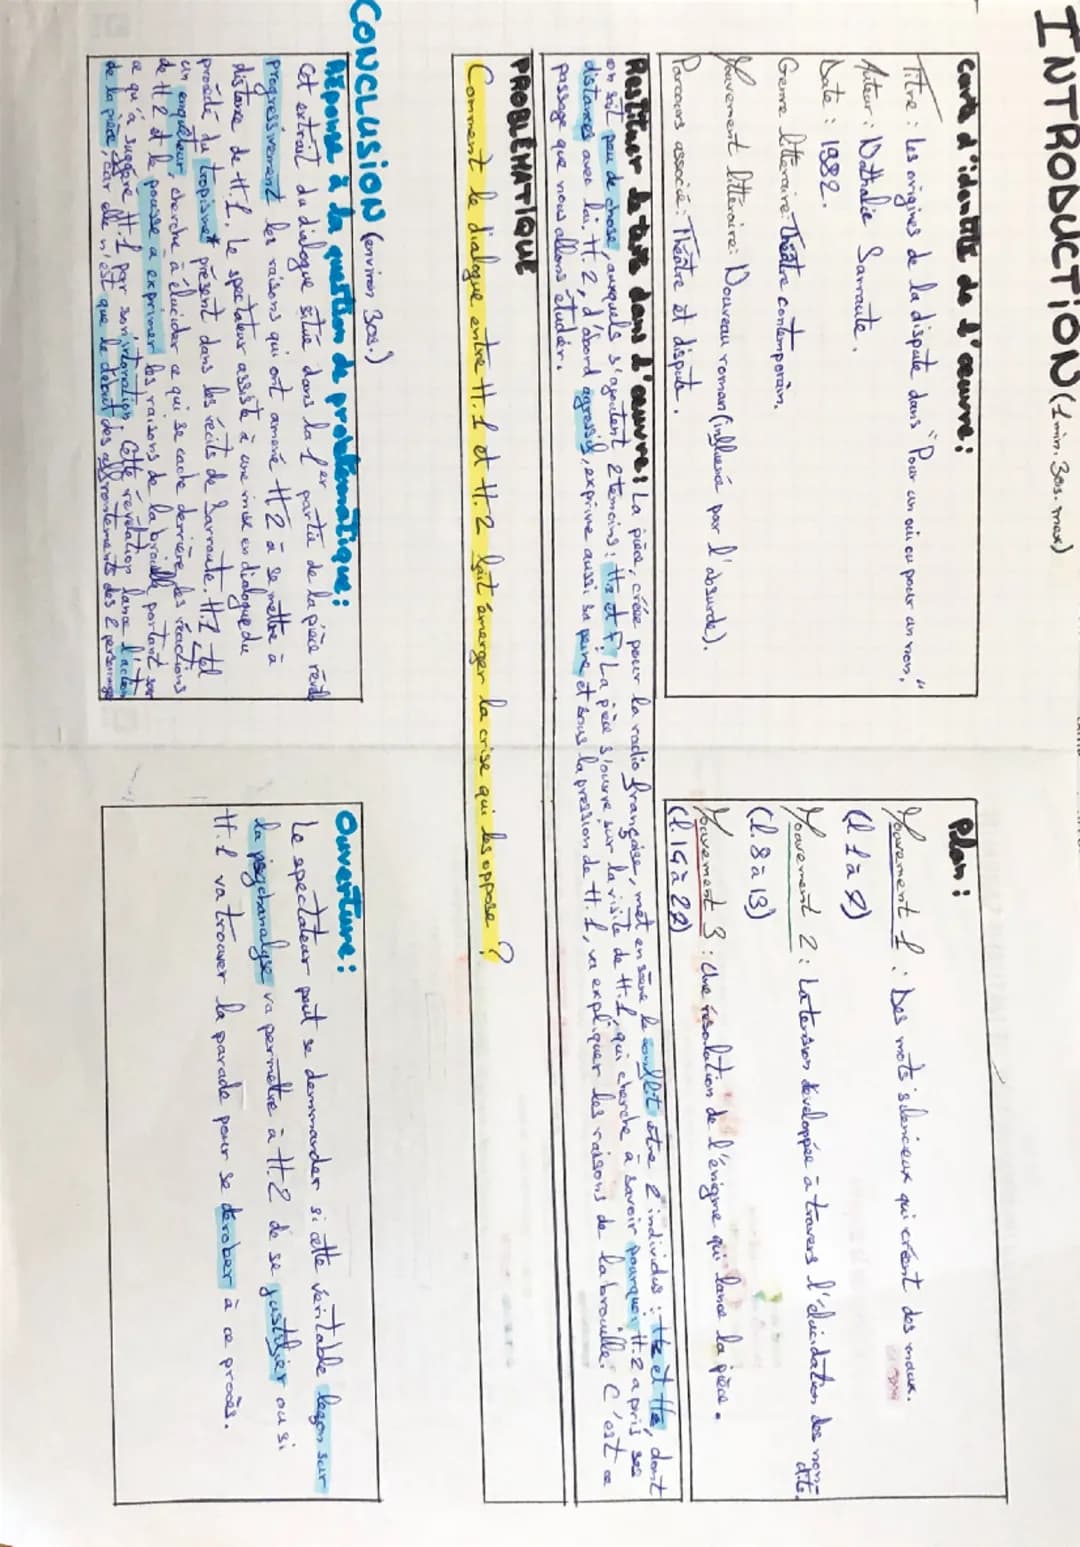 INTRODUCTION (1 min. 30s. max)
Carte d'identité de l'œuvre :
Titre : Les origines de la dispute dans "Pour un oui ou pour un non,"
Auteur : Nathalie Sarraute.
Date : 1982.
Genre littéraire : Théâtre contemporain.
Mouvement littéraire : Nouveau roman (influencé par l'absurde).
Parcours associé : Théâtre et dispute.
Plan :
Mouvement 1 : Des mots silencieux qui créent des maux.
(l. 1 à 7)
Mouvement 2 : La tension développée à travers l'élucidation des non-dits.
(l. 8 à 13)
Mouvement 3 : Une résolution de l'énigme qui lance la pièce.
(l. 14 à 22)
Restituer le texte dans l'œuvre : La pièce, créée pour la radio française, met en scène le conflit entre 2 individus : H1 et H2, dont
on sait peu de chose, auxquels s'ajoutent 2 témoins : H3 et F. La pièce s'ouvre sur la visite de H.1 qui cherche à savoir pourquoi H.2 a pris ses
distances avec lui. H.2, d'abord agressif, exprime aussi sa peine et sous la pression de H.1, va expliquer les raisons de la brouille. C'est ce
passage que nous allons étudier.
PROBLÉMATIQUE
Comment le dialogue entre H.1 et H.2 fait émerger la crise qui les oppose ?
CONCLUSION (environ 30s.)
Réponse à la question de problématique :
Cet extrait du dialogue situé dans la 1er partie de la pièce révèle
progressivement les raisons qui ont amené H2 à se mettre à
distance de H.1. Le spectateur assiste à une mise en dialogue du
procédé du tropisme* présent dans les récits de Sarraute. H.1 tel
un enquêteur, cherche à élucider ce qui se cache derrière les réactions
de H2 et le pousse à exprimer les raisons de la brouille portant sur
ce qu'a suggéré H.1 par son intonation. Cette révélation lance l'action
de la pièce, car elle n'est que le début des affrontements des 2 personnages
Ouverture :
Le spectateur peut se demander si cette véritable leçon sur
la psychanalyse va permettre à H.2 de se justifier ou si
H.1 va trouver la parade pour se dérober à ce procès.